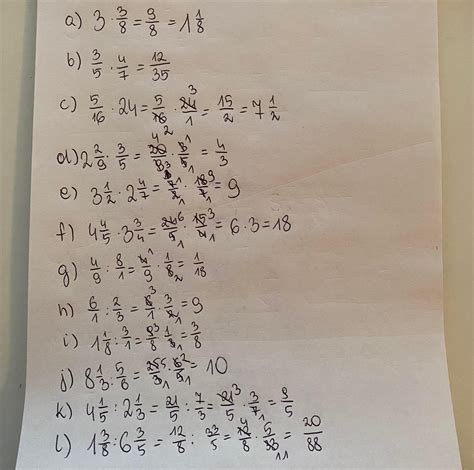 a) 3 · 3/8 = 9/8 = 1 1/8
b) 3/5 · 4/7 = 12/35
c) 5/16 · 24 = 5/16 · 24 3/1 = 15/2 = 7 1/2
d) 2 2/9 · 3/5 = 20/9 · 3/5 = 4/3
e) 3 1/2 · 2 4/7 = 7/2 · 18/7 = 9
f) 4 4/5 · 3 3/4 = 24/5 · 15/4 = 6 · 3 = 18
g) 4/9 : 8/1 = 4/9 · 1/8 = 1/18
h) 6/1 : 2/3 = 6/1 · 3/2 = 9
i) 1 1/8 : 3/1 = 9/8 · 1/3 = 3/8
j) 8 1/3 : 5/6 = 25/3 · 6/5 = 10
k) 4 1/5 : 2 1/3 = 21/5 : 7/3 = 21/5 · 3/7 = 9/5
l) 1 3/8 : 6 3/5 = 12/8 : 33/5 = /8 · 5/ = 20/88